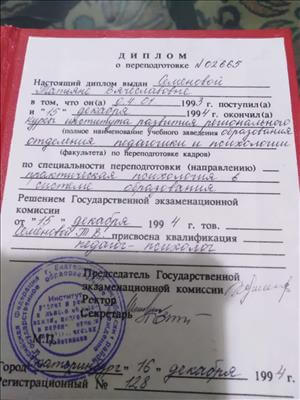 ДИПЛОМ
о переподготовке № 02665
Настоящий диплом выдан Семеновой
Татьяне Вячеславовне
в том, что он(а) 01 1993 г. поступил(а)
и "15" декабря 1994 г. окончил(а)
курсы института развития регионального
(полное наименование учебного заведения образования
отделения педагогики и психологии
(факультета) по переподготовке кадров)
по специальности переподготовки (направлению)
практическая психология в
системе образования
Решением Государственной экзаменационной
комиссии
от "15" декабря 1994 г. тов.
Семеновой Т.В. присвоена квалификация
педагог-психолог
Председатель Государственной
экзаменационной комиссии
Ректор
Секретарь
М.П.
Город Екатеринбург "16" декабря 1994 г.
Регистрационный № 128